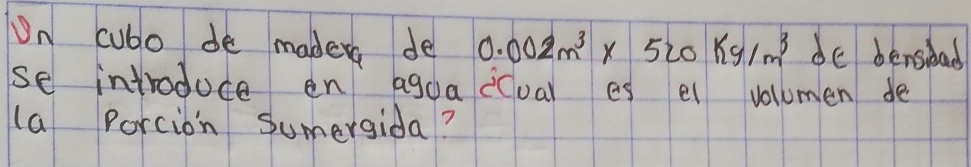 Un cubo de madera de 0.002m³ x 520 Kg/m³ de densidad
se introduce en agua ¿Cual es el volumen de
la Porción sumergida?